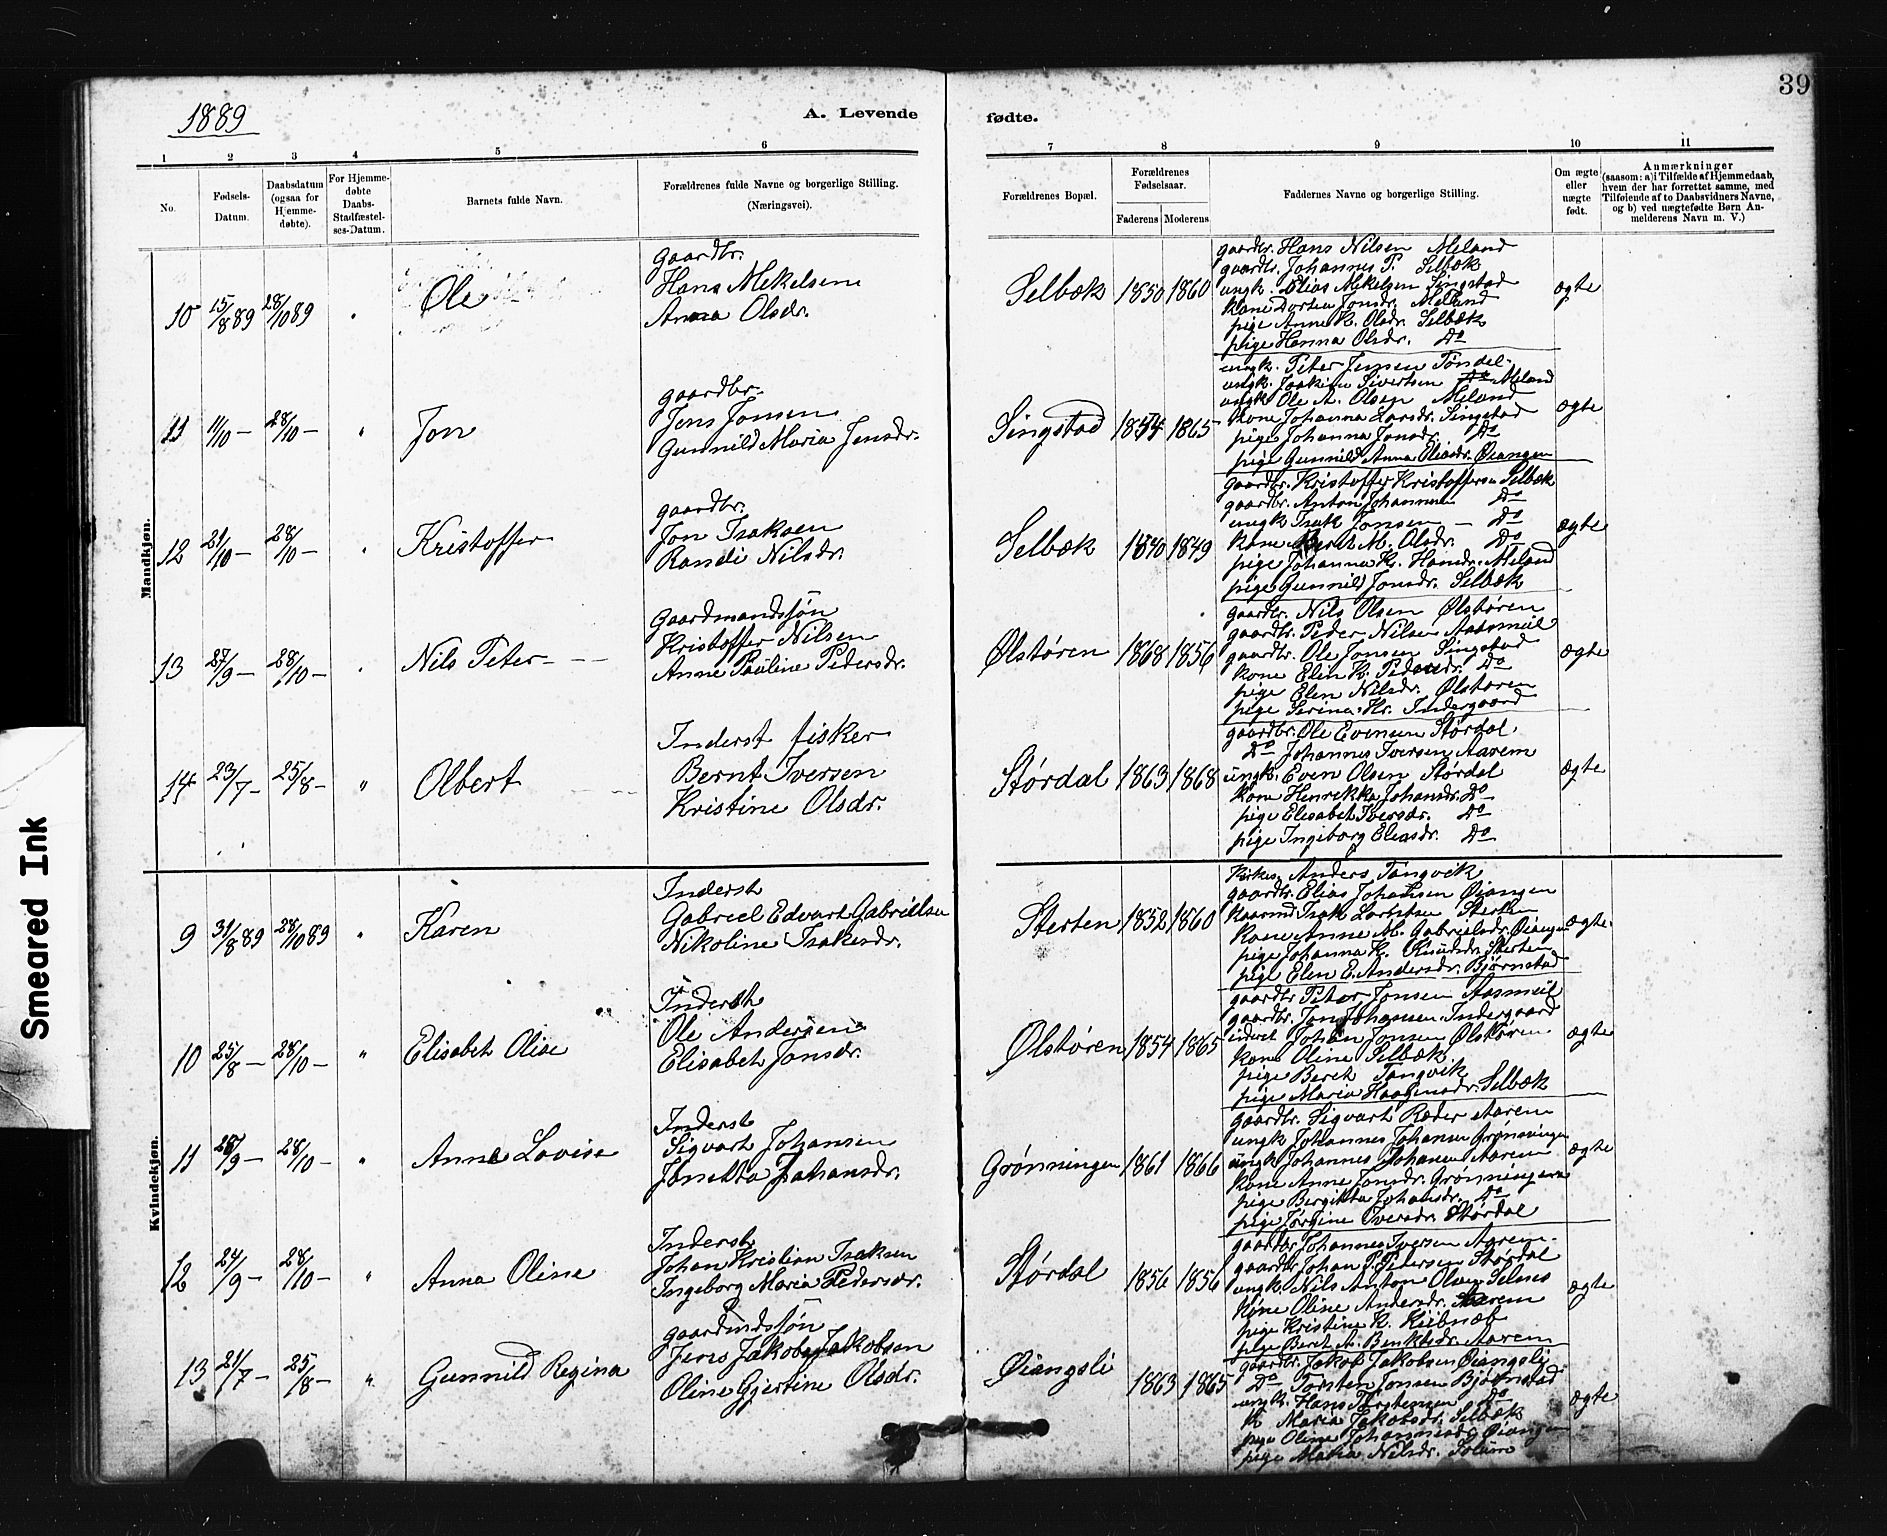 39
1889
A. Levende fødte.
1 2 3 4 5 6 7 8 9 10 11
No.
Fødsels-Datum.
Daabsdatum (ogsaa for Hjemme-døbte).
For Hjemme-døbte Daabs-Stadfæstel-ses-Datum.
Barnets fulde Navn.
Forældrenes fulde Navne og borgerlige Stilling. (Næringsvei).
Forældrenes Bopæl.
Forældrenes Fødselsaar.
Faderens Moderens
Faddernes Navne og borgerlige Stilling.
Om ægte eller uægte født.
Anmærkninger (saasom: a) i Tilfælde af Hjemmedaab, hvem der har forrettet samme, med Tilføiende af to Daabsvidners Navne, og b) ved uægtefødte Børn An-melderens Navn m. V.)
Mandkjøn.
10 15/8 89 28/10 89 " Ole
gaardbr.
Hans Mekelsen
Anna Olsdr.
Selbæk 1850 1860
gaardbr. Hans Nilsen Meland
gaardbr. Johannes P. Selbæk
ungk. Elias Mekelsen Singstad
kone Dortea Jonsdr. Meland
pige Anne K. Olsdr. Selbæk
pige Hanna Olsdr. Do
ægte
11 11/10 – 28/10 – " Jon
gaardbr.
Jens Jonsen
Gunnild Maria Jensdr.
Singstad 1854 1865
ungk. Peter Jensen Tøndel
ungk. Joakim Sivertsen Meland
ungk Ole A. Olsen Meland
kone Johanna Larsdr. Singstad
pige Johanna Jonsdr. Do
pige Gunnild Anna Oliasdr. Øiangen
ægte
12 21/10 – 28/10 – " Kristoffer
gaardbr.
Jon Isaksen
Randi Nilsdr.
Selbæk 1840 1849
gaardbr. Kristoffer Kristoffersen Selbæk
gaardbr. Anton Johannesen Do
ungk Isak Jonsen – Do
kone Beret M. Olsdr. Do
pige Johanna K. Hansdr. Meland
pige Gunnild Jonsdr. Selbæk
ægte
13 27/9 – 28/10 – " Nils Peter
gaardmandssøn
Kristoffer Nilsen
Anne Pauline Pedersdr.
Ølstøren 1868 1856
gaardbr. Nils Olsen Ølstøren
gaardbr. Peder Nilsen Aasmeil
gaardbr. Ole Jonsen Singstad
kone Elen K. Pedersdr. Do
pige Elen Nilsdr. Ølstøren
pige Serina Kr. Indergaard
ægte
14 23/7 – 25/8 – " Olbert
Inderst fisker
Bernt Iversen
Kristine Olsdr.
Størdal 1863 1868
gaardbr. Ole Evensen Størdal
Do Johannes Iversen Aarem
ungk. Even Olsen Størdal
kone Henrikka Johansdr. Do
pige Elisabet Iversdr. Do
pige Ingeborg Eliasdr. Do
ægte
Kvindekjøn.
9 31/8 89 28/10 89 " Karen
Inderst
Gabriel Edvart Gabrielsen
Nikoline Isaksdr.
Sterten 1852 1860
Kirkes. Anders Tangvik
gaardbr. Elias Johansen Øiangen
kaarmd Isak Larsen Sterten
kone Anne M. Gabrielsdr. Øiangen
pige Johanna K. Knudsdr. Sterten
pige Elen E. Andersdr. Bjørnstad
ægte
10 25/8 – 28/10 – " Elisabet Olise
Inderst
Ole Andersen
Elisabet Jonsdr.
Ølstøren 1854 1865
gaardbr Peter Jonsen Aasmeil
gaardbr. Jon Johansen Indergaard
inderst Johan Jonsen Ølstøren
kone Oline Selbæk
pige Beret Tangvik
pige Maria Haagensdr. Selbæk
ægte
11 28/9 – 28/10 – " Anne Lovise
Inderst
Sigvart Johansen
Jonetta Johansdr.
Grønningen 1861 1866
gaardbr. Sigvart Røder Aarem
ungk Johannes Johansen Grønningen
ungk Johannes Johansen Aarem
kone Anne Jonsdr. Grønningen
pige Bergitta Johansdr. Do
pige Jørgine Iversdr. Størdal
ægte
12 24/9 – 28/10 – " Anna Oline
Inderst
Johan Kristian Isaksen
Ingeborg Maria Pedersdr.
Størdal 1856 1856
gaardbr Johannes Iversen Aarem
gaardbr Johan P. Petersen Størdal
ungk. Nils Anton Olsen Selnes
kone Oline Andersdr. Aarem
pige Kristine K.
pige Beret A. Aarem
ægte
13 21/7 – 25/8 – " Gunnild Regina
gaardmdssøn
Jens Jakob Jakobsen
Oline Gjertine Olsdr.
Øiangsli 1863 1865
gaardbr. Jakob Jakobsen Øiangsli
Do Torsten Jonsen Bjørnstad
ungk. Hans Torstensen Do
k Maria Jakobsdr. Selbæk
pige Oline Johannesdr Øiangen
pige Maria Nilsdr. Solem
ægte
Smeared Ink